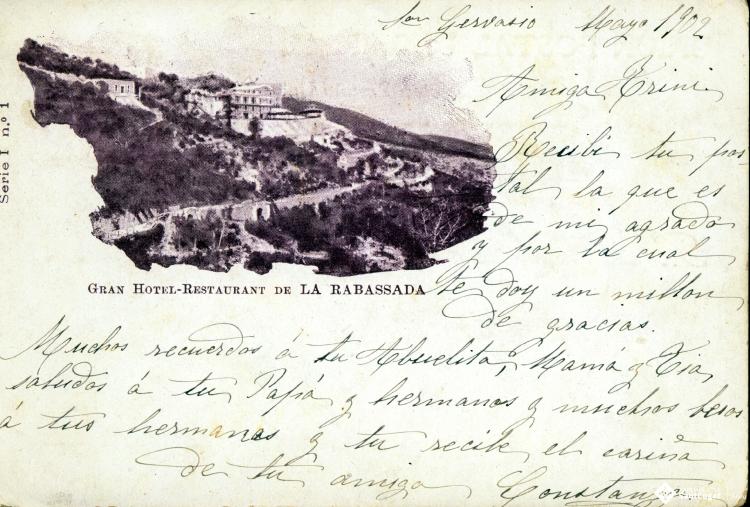 San Gervasio Mayo 1902
Amiga Trini.
Recibi tu pos
tal la que es
de mi agrado
y por la cual
te doy un millon
de gracias.
Serie I n.º 1
GRAN HOTEL-RESTAURANT DE LA RABASSADA
Muchos recuerdos á tu Abuelita, Mamá y Tia,
saludos á tu Papá y hermanos y muchos besos
á tus hermanas y tu recibe el cariño
de tu amiga Constanza